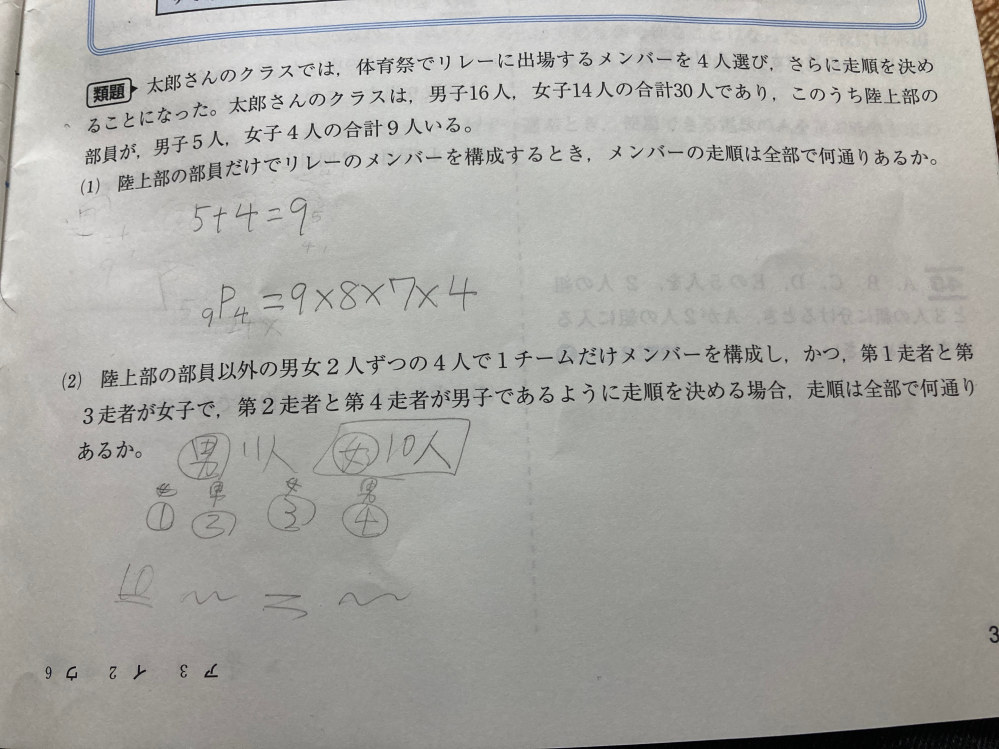 類題 太郎さんのクラスでは，体育祭でリレーに出場するメンバーを4人選び，さらに走順を決め
ることになった。太郎さんのクラスは，男子16人，女子14人の合計30人であり，このうち陸上部の
部員が，男子5人，女子4人の合計9人いる。
(1) 陸上部の部員だけでリレーのメンバーを構成するとき，メンバーの走順は全部で何通りあるか。
5+4=9
₉P₄=9×8×7×4
(2) 陸上部の部員以外の男女2人ずつの4人で1チームだけメンバーを構成し，かつ，第1走者と第
3走者が女子で，第2走者と第4走者が男子であるように走順を決める場合，走順は全部で何通り
あるか。
男 11人 女 10人
女 男 女 男
① ② ③ ④
10
ア 3 イ 2 ウ 6
3